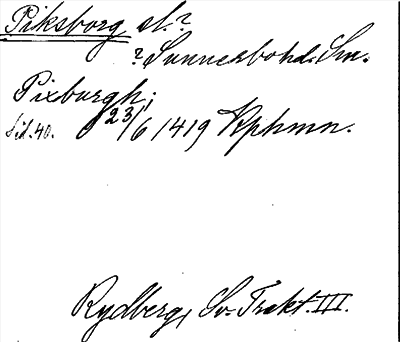 Piksborg sl.?
? Sunnerbohd. Sm.
Pixburgh;
Sid. 40. 23/6 1419 Kphmn.
Rydberg, Sv. Trakt. III.